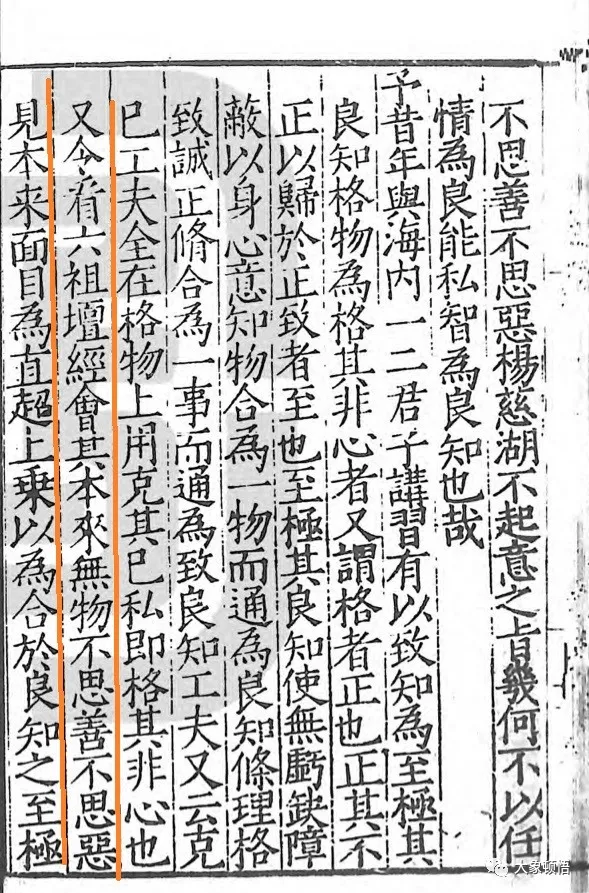 不思善不思惡楊慈湖不起意之旨幾何不以任
情為良能私智為良知也哉
予昔年與海内一二君子講習有以致知為至極其
良知格物為格其非心者又謂格者正也正其不
正以歸於正致者至也至極其良知使無虧缺障
蔽以身心意知物合為一物而通為良知條理格
致誠正脩合為一事而通為致良知工夫又云克
己工夫全在格物上用克其己私即格其非心也
又令看六祖壇經會其本來無物不思善不思惡
見本来面目為直超上乗以為合於良知之至極
大象顿悟